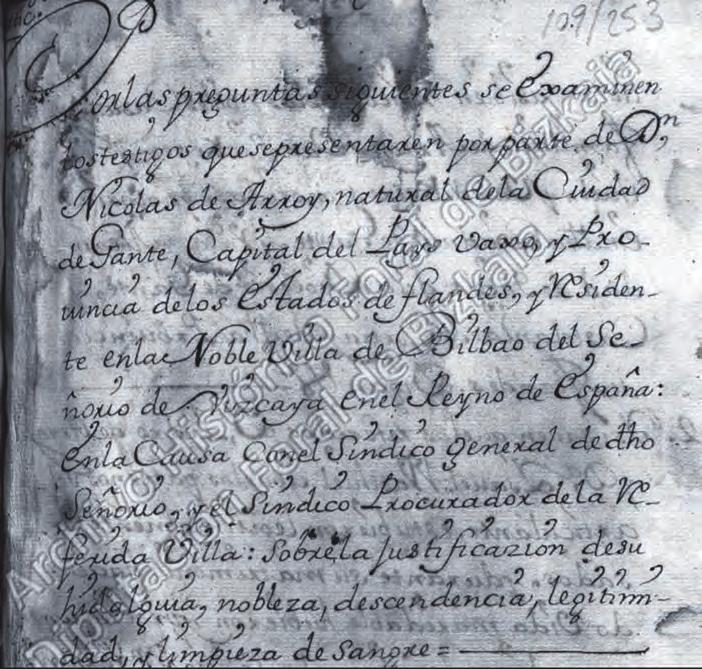 109/253
Por las preguntas siguientes se examinen
los testigos que se presentaren por parte de Dn,
Nicolas de Arroy, natural dela Ciudad
de Gante, Capital del Pays vaxo, y Pro-
uincia delos estados de flandes, y Residen-
te enla Noble Villa de Bilbao del Se-
ñorio de Vizcaya enel Reyno de España:
enla Causa Conel Sindico general de dho
Señorio, y el Sindico Procurador de la Re-
ferida Villa: Sobre la justificazion desu
hidalguia, nobleza, descendencia, legitimi-
dad, y limpieza de sangre =
Archivo Histórico Foral de Bizkaia
Diputación Foral de Bizkaia